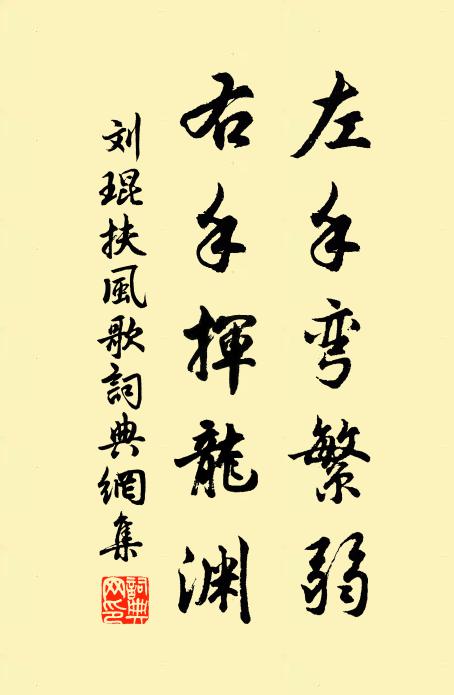 左手弯繁弱
右手揮龍渊
刘琨扶風歌詞典網集
詞典网印